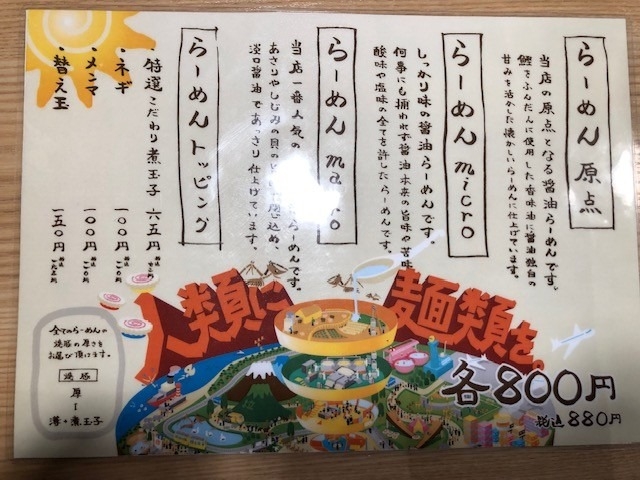 らーめん 原点
当店の原点となる醤油らーめんです。
鰹をふんだんに使用した香味油に醤油独自の
甘みを活かした懐かしいらーめんに仕上げています。
らーめん micro
しっかり味の醤油らーめんです。
何事にも捕われず醤油本来の旨味や苦味
酸味や塩味の全てを許したらーめんです。
らーめん macro
当店一番人気の らーめんです。
あさりやしじみの貝の め込め、
淡口醤油であっさり仕上げています。
らーめん トッピング
・特選こだわり煮玉子 六五円
・ネギ 一〇〇円
・メンマ 一〇〇円
・替え玉 一五〇円
人類に
麺類を。
各800円
税込880円
全てのらーめんの
焼豚の厚さを
お選び頂けます。
焼豚
厚
薄・煮玉子